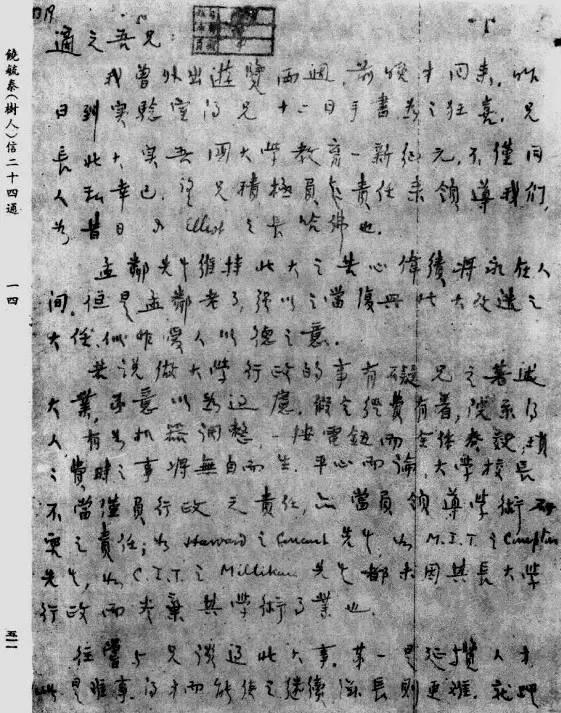 適之吾兄:
我曾外出遊覽兩週,前晚才回來,昨
日到実驗室得兄十二日手書,為之狂喜。兄
長此大,実吾國大學教育一新紀元,不僅同
人私幸已。望兄積極負起責任來領導我們,
為昔日 Eliot 之長哈佛也。
孟鄰先生維持此大之苦心偉績將永在人
間。但是孟鄰老了,強以之當復興此大改造之
大任,似非愛人以德之意。
若說做大學行政的事有礙兄之著述
大業,函意以為過慮。假定經費有着,院系得
人,有如机器調整,一按電鈕而全体奏效,瑣
之費時之事將無自而生。平心而論,大學校長
不當僅負行政之責任,亦當負領導學術研
究之責任;如 Harvard 之 Conant 先生,如 M.I.T. 之 Compton
先生,如 C.I.T. 之 Millikan 先生都未因其長大學
行政而荒棄其學術事業也。
往嘗与兄談過此大事,第一是延攬人才
此是難事,得才而能使之繼續滋長則更難。就
饒毓泰(樹人)信二十四通
一四
五一一